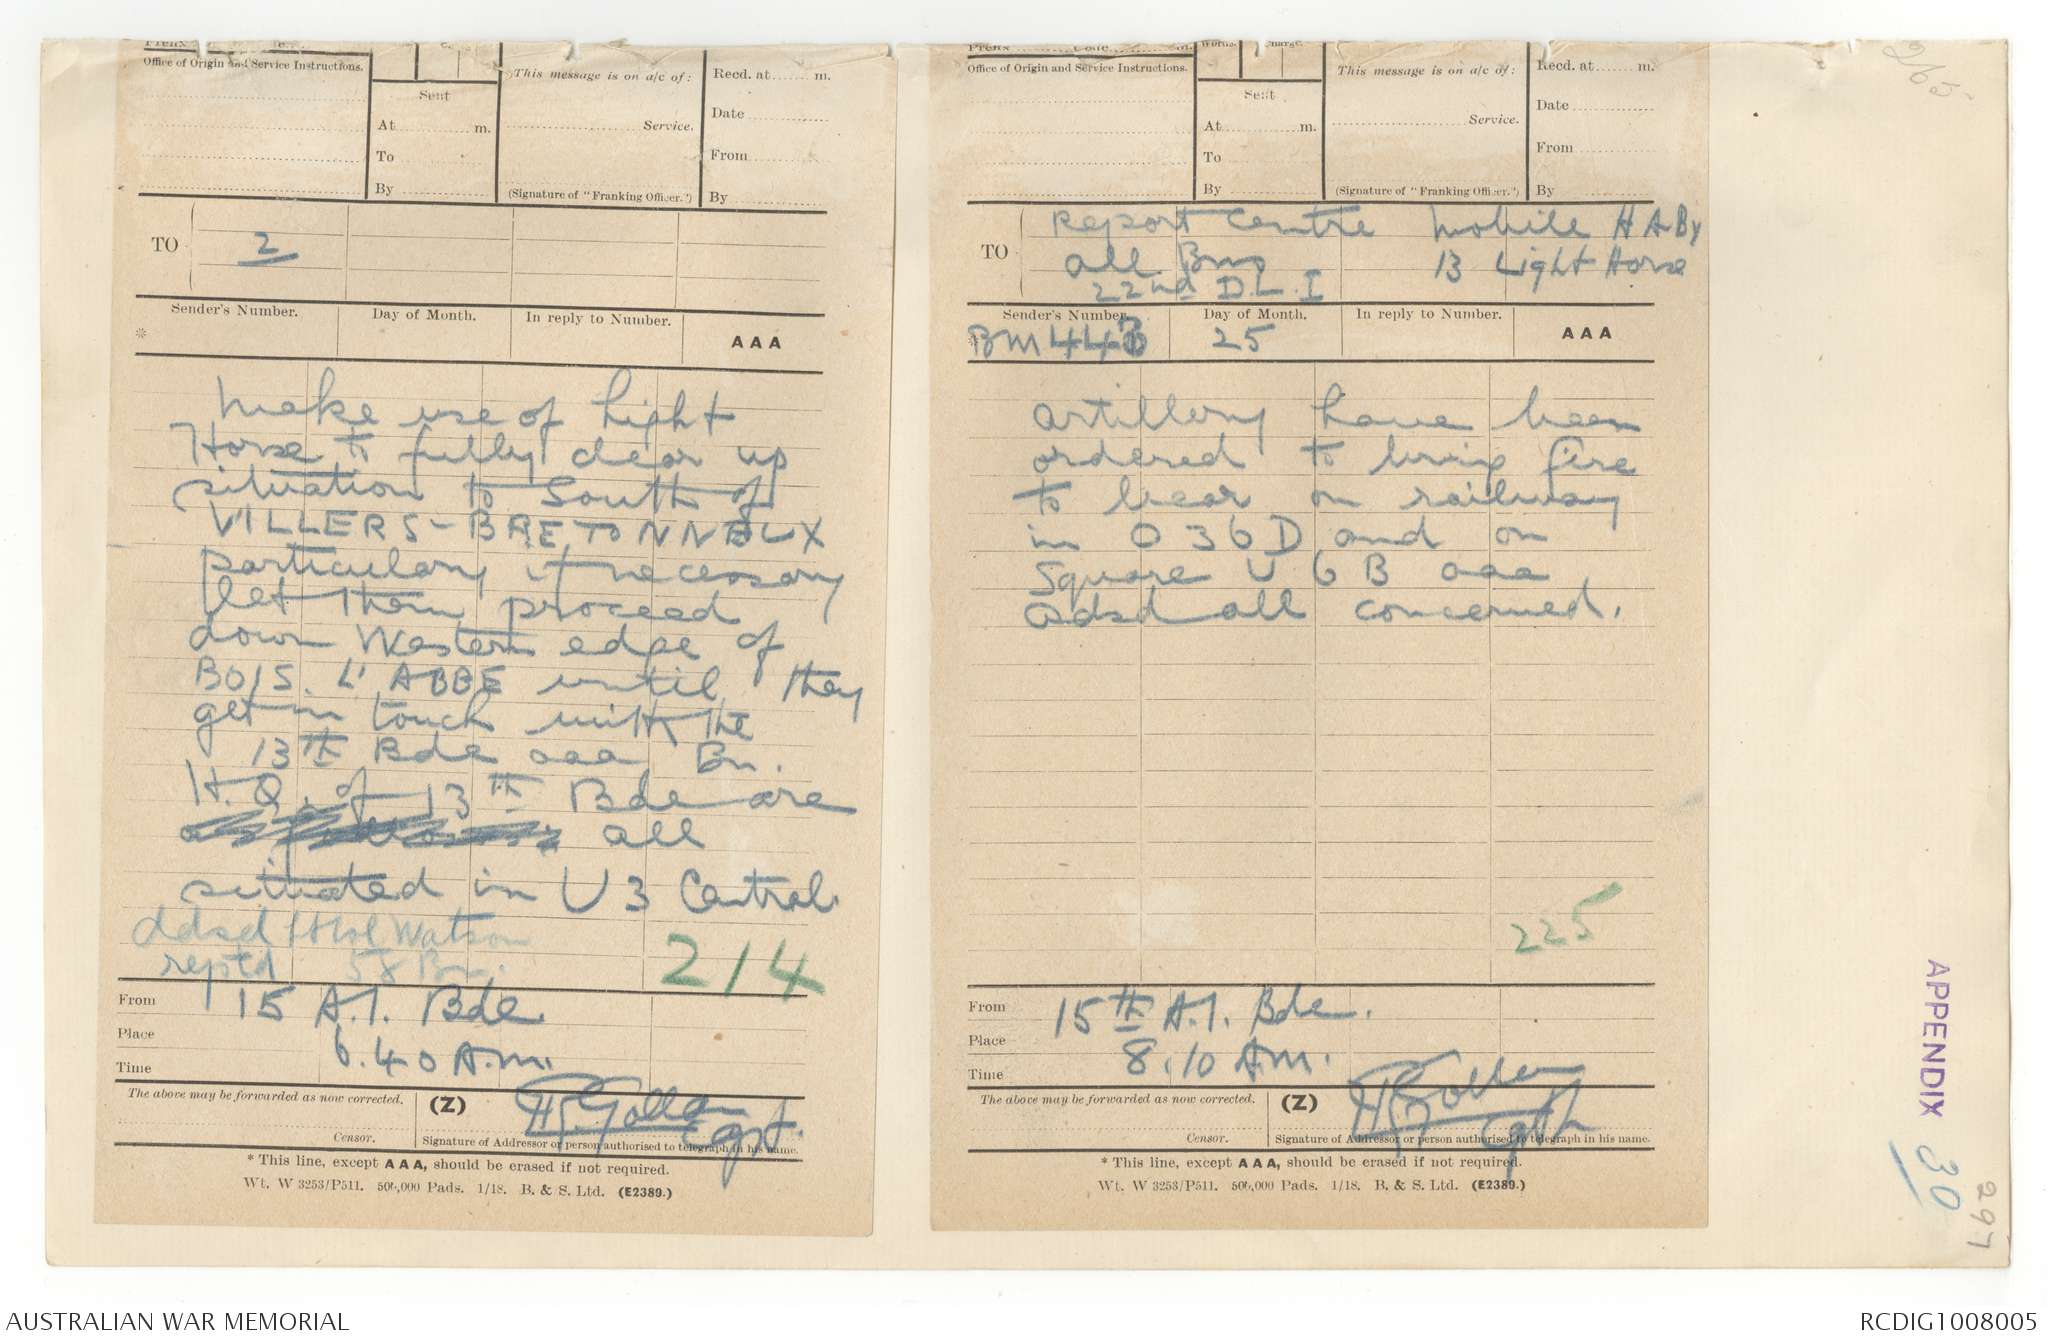 Prefix
Office of Origin and Service Instructions.
Sent
At ...... m.
To ......
By ......
This message is on a/c of:
...... Service.
(Signature of "Franking Officer.")
Recd. at ...... m.
Date ......
From ......
By ......
TO
2
Sender's Number.
Day of Month.
In reply to Number.
AAA
*
make use of Light
Horse to fully clear up
situation to South of
VILLERS-BRETONNEUX
particularly if necessary
let them proceed
down Western edge of
BOIS. L'ABBE until they
get in touch with the
13th Bde aaa Bn.
H.Q. of 13th Bde are
all
situated in U 3 Central.
ddsd Watson
reptd 58 Bn.
214
From
15 A.I. Bde.
Place
Time
6.40 A.M.
The above may be forwarded as now corrected.
(Z)
Censor.
Signature of Addressor or person authorised to telegraph in his name.
Capt.
* This line, except AAA, should be erased if not required.
Wt. W 3253/P511. 500,000 Pads. 1/18. B. & S. Ltd. (E2389.)
Prefix ...... Code ...... m.
Words.
Charge.
Office of Origin and Service Instructions.
Sent
At ...... m.
To ......
By ......
This message is on a/c of:
...... Service.
(Signature of "Franking Officer.")
Recd. at ...... m.
Date ......
From ......
By ......
TO
Report Centre Mobile H A By
all Bns 13 Light Horse
22nd D.L.I
Sender's Number.
Day of Month.
In reply to Number.
AAA
BM 443
25
Artillery have been
ordered to bring fire
to bear on railway
in O 36 D and on
Square U 6 B aaa
adsd all concerned.
225
From
15th A.I. Bde.
Place
Time
8.10 A.M.
The above may be forwarded as now corrected.
(Z)
Censor.
Signature of Addressor or person authorised to telegraph in his name.
Capt
* This line, except AAA, should be erased if not required.
Wt. W 3253/P511. 500,000 Pads. 1/18. B. & S. Ltd. (E2389.)
265
APPENDIX 30
297
AUSTRALIAN WAR MEMORIAL
RCDIG1008005